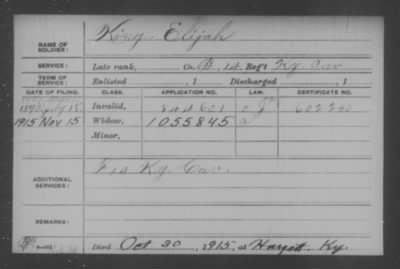 King, Elijah
NAME OF SOLDIER:
SERVICE: Late rank, Co. B, 1st Reg't Ky. Cav.
TERM OF SERVICE: Enlisted , 1 Discharged , 1
DATE OF FILING. CLASS. APPLICATION NO. LAW. CERTIFICATE NO.
Invalid, 844601 602250
1915 Nov 15 Widow, 1055845
Minor,
ADDITIONAL SERVICES: Ky. Cav.
REMARKS:
Died Oct 30, 1915, at Hargett Ky.